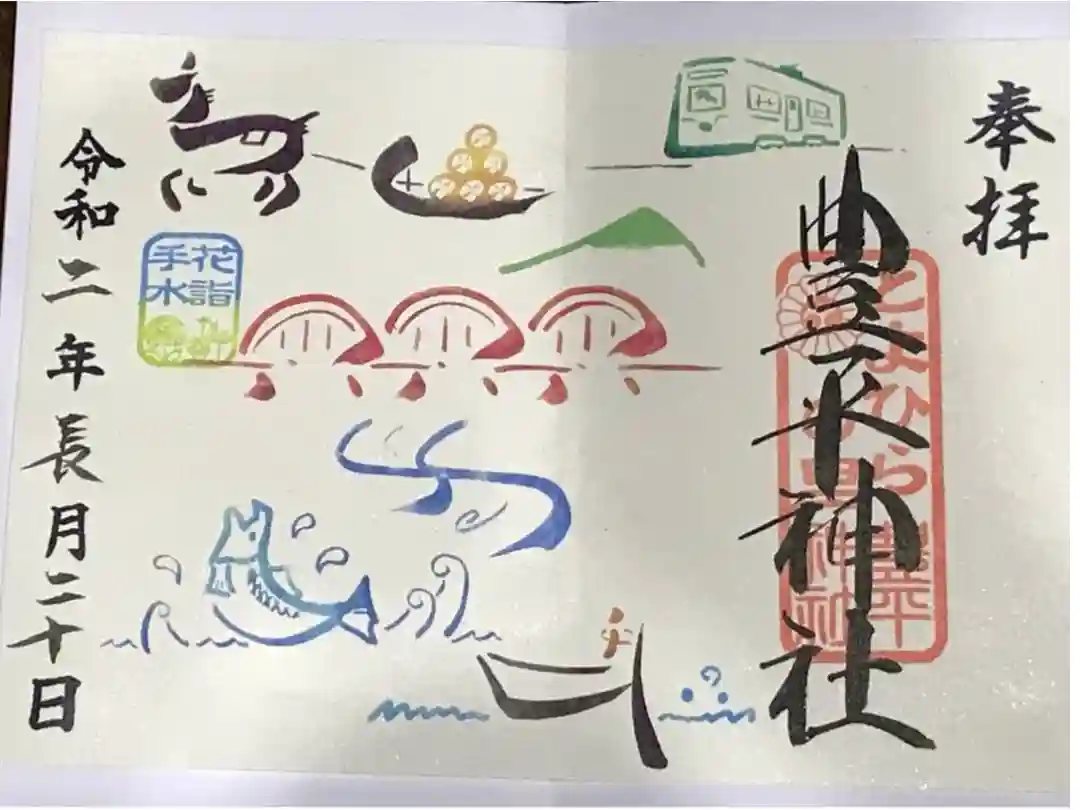 奉拝
豊平神社
とよひら
花詣
手水
令和二年長月二十日